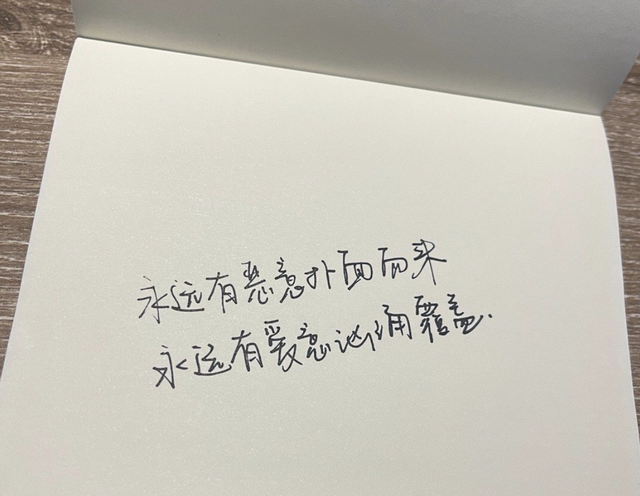 永远有恶意扑面而来
永远有爱意汹涌覆盖.